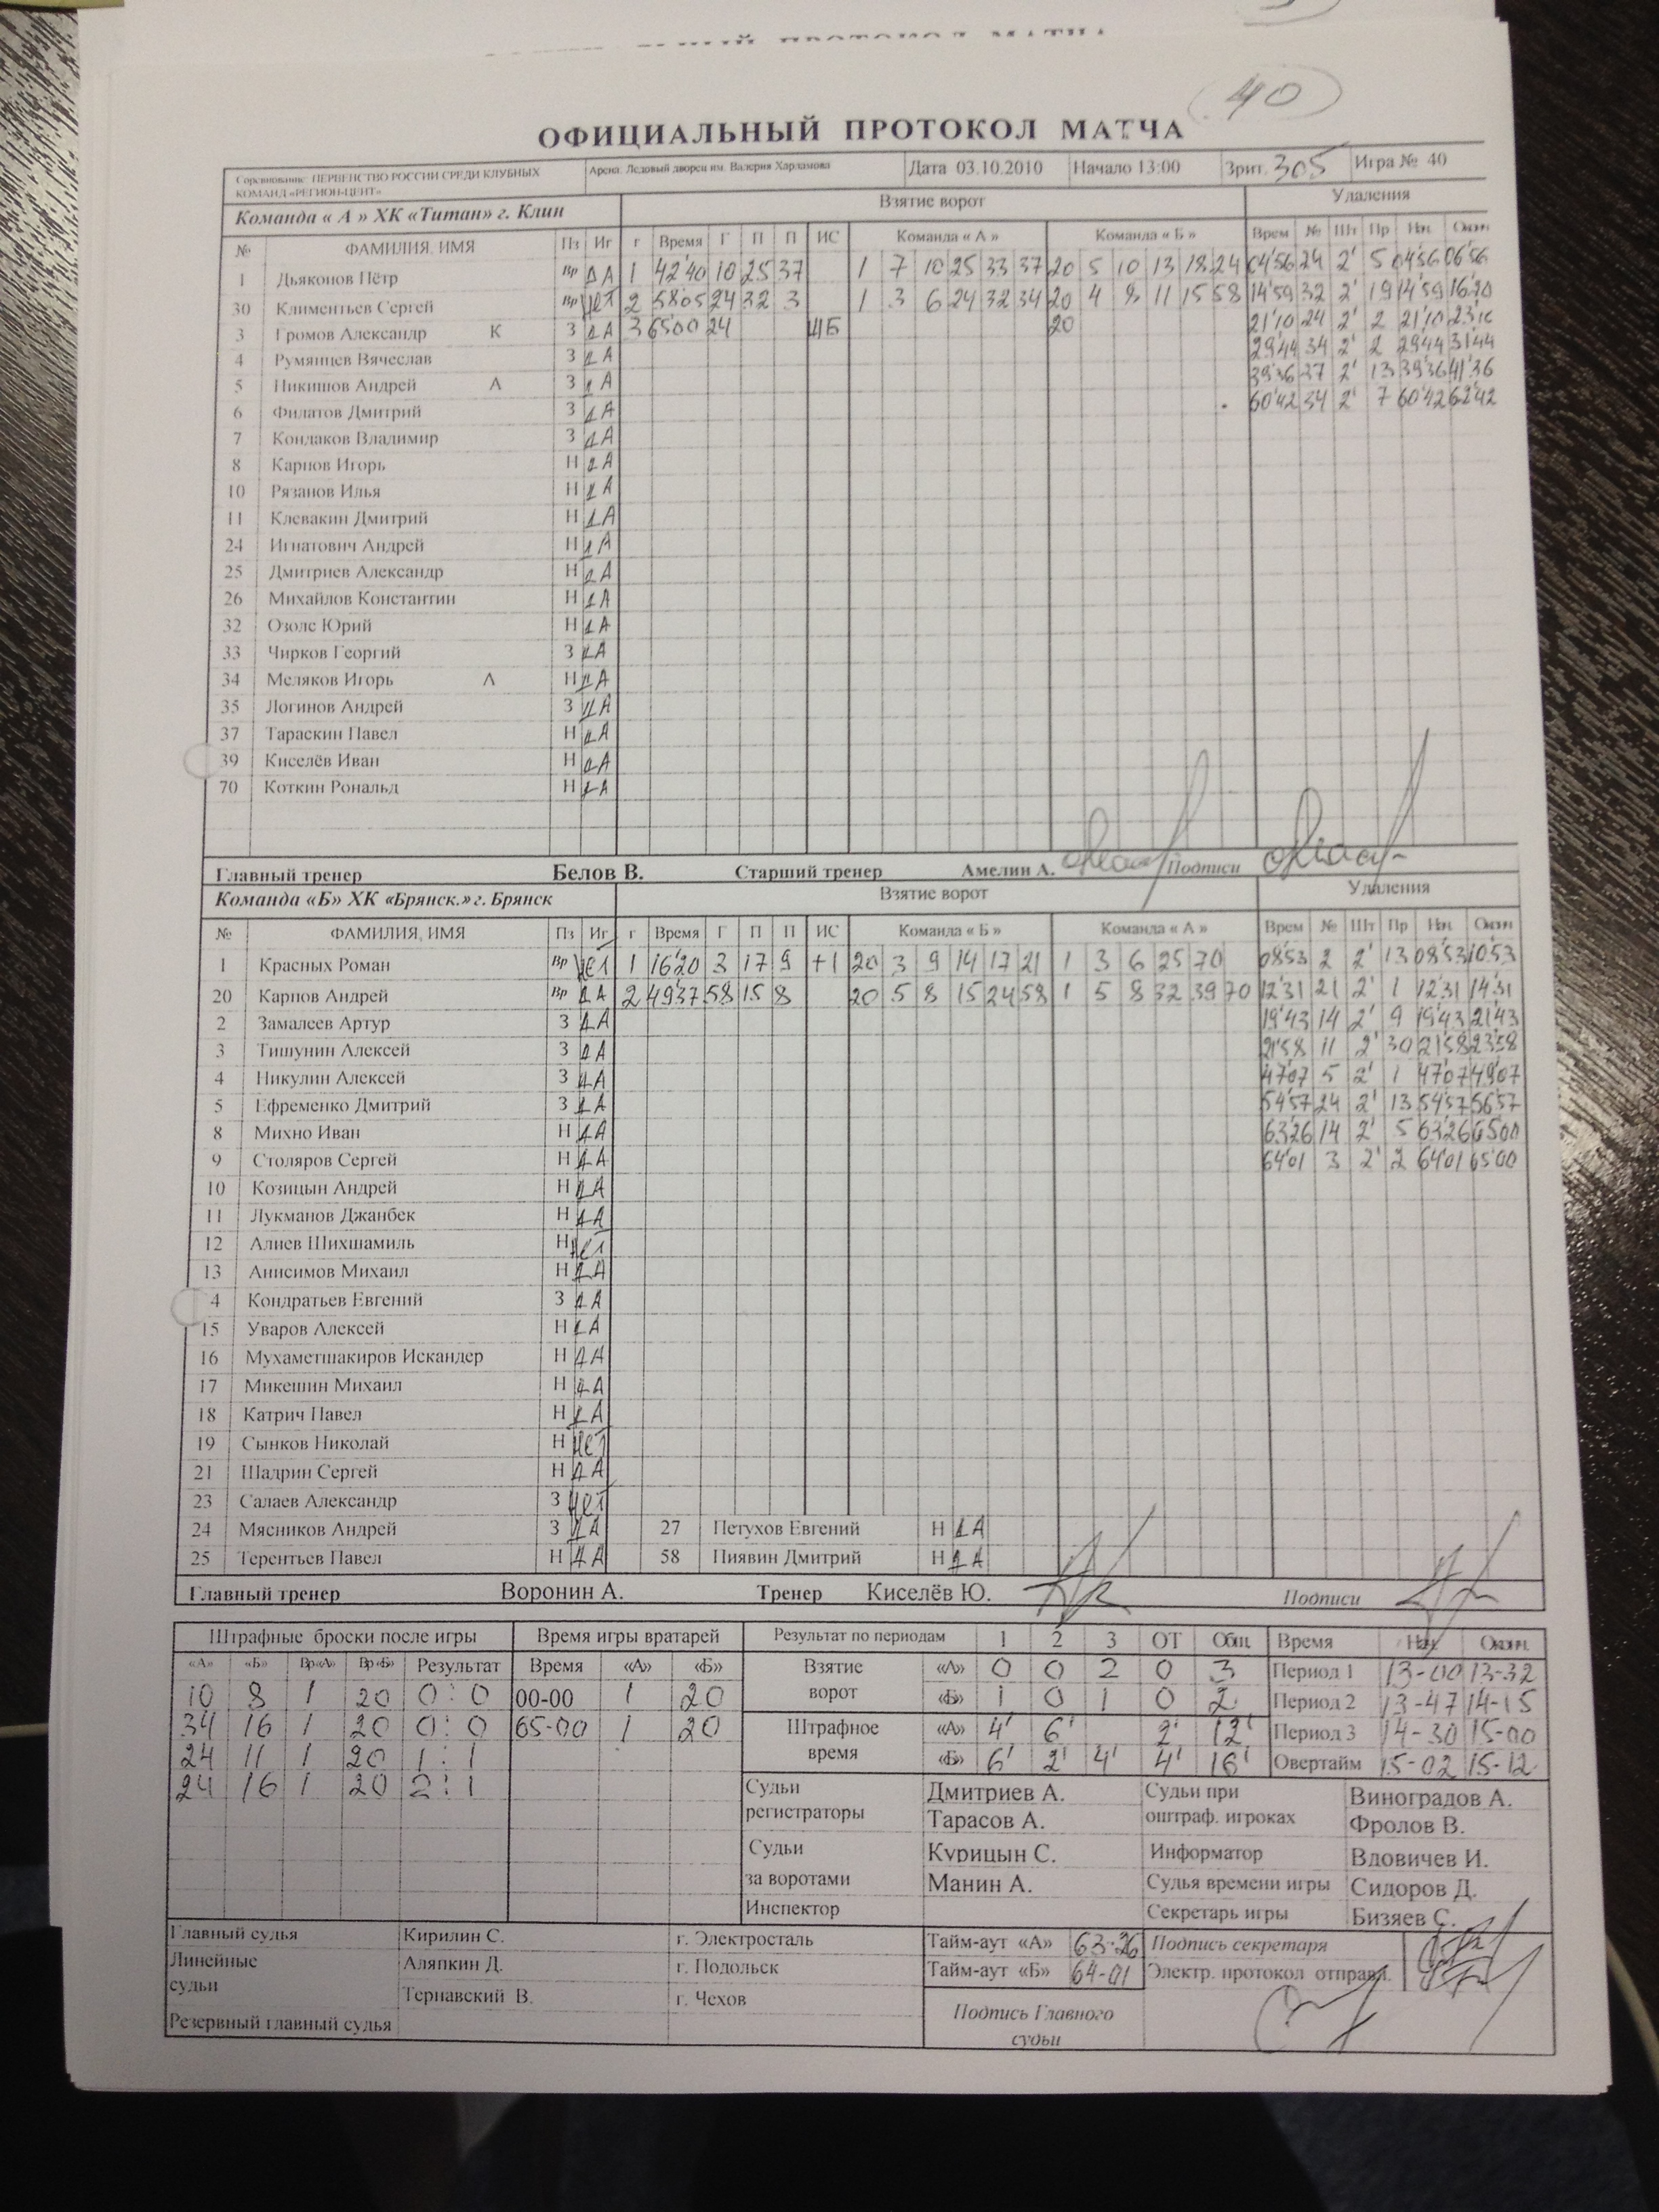 40
ОФИЦИАЛЬНЫЙ ПРОТОКОЛ МАТЧА
Соревнование: ПЕРВЕНСТВО РОССИИ СРЕДИ КЛУБНЫХ КОМАНД «РЕГИОН-ЦЕНТ» Арена. Ледовый дворец им. Валерия Харламова Дата 03.10.2010 Начало 13:00 Зрит. 305 Игра № 40
Команда « А » ХК «Титан» г. Клин Взятие ворот Удаления
№ ФАМИЛИЯ, ИМЯ Пз Иг г Время Г П П ИС Команда « А » Команда « Б » Врем № Шт Пр Нач. Оконч.
1 Дьяконов Пётр Вр ДА 1 42'40 10 25 37 1 7 10 25 33 37 20 5 10 13 18 24 04'56 24 2' 5 04'56 06'56
30 Климентьев Сергей Вр НЕТ 2 58'05 24 32 3 1 3 6 24 32 34 20 4 8 11 15 58 14'59 32 2' 19 14'59 16'20
3 Громов Александр К З ДА 3 65'00 24 ШБ 20 21'10 24 2' 2 21'10 23'10
4 Румянцев Вячеслав З ДА 29'44 34 2' 2 29'44 31'44
5 Никишов Андрей А З ДА 39'36 37 2' 13 39'36 41'36
6 Филатов Дмитрий З ДА 60'42 34 2' 7 60'42 62'42
7 Кондаков Владимир З ДА
8 Карпов Игорь Н ДА
10 Рязанов Илья Н ДА
11 Клевакин Дмитрий Н ДА
24 Игнатович Андрей Н ДА
25 Дмитриев Александр Н ДА
26 Михайлов Константин Н ДА
32 Озолс Юрий Н ДА
33 Чирков Георгий З ДА
34 Меляков Игорь А Н ДА
35 Логинов Андрей З ДА
37 Тараскин Павел Н ДА
39 Киселёв Иван Н ДА
70 Коткин Рональд Н ДА
Главный тренер Белов В. Старший тренер Амелин А. Подписи
Команда «Б» ХК «Брянск.» г. Брянск Взятие ворот Удаления
№ ФАМИЛИЯ, ИМЯ Пз Иг г Время Г П П ИС Команда « Б » Команда « А » Врем № Шт Пр Нач. Оконч.
1 Красных Роман Вр НЕТ 1 16'20 3 17 9 +1 20 3 9 14 17 21 1 3 6 25 70 08'53 2 2' 13 08'53 10'53
20 Карпов Андрей Вр ДА 2 49'37 58 15 8 20 5 8 15 24 58 1 5 8 32 39 70 12'31 21 2' 1 12'31 14'31
2 Замалеев Артур З ДА 19'43 14 2' 9 19'43 21'43
3 Тишунин Алексей З ДА 21'58 11 2' 30 21'58 23'58
4 Никулин Алексей З ДА 47'07 5 2' 1 47'07 49'07
5 Ефременко Дмитрий З ДА 54'57 24 2' 13 54'57 56'57
8 Михно Иван Н ДА 63'26 14 2' 5 63'26 65'00
9 Столяров Сергей Н ДА 64'01 3 2' 2 64'01 65'00
10 Козицын Андрей Н ДА
11 Лукманов Джанбек Н ДА
12 Алиев Шихшамиль Н НЕТ
13 Анисимов Михаил Н ДА
4 Кондратьев Евгений З ДА
15 Уваров Алексей Н ДА
16 Мухаметшакиров Искандер Н ДА
17 Микешин Михаил Н ДА
18 Катрич Павел Н ДА
19 Сынков Николай Н НЕТ
21 Шадрин Сергей Н ДА
23 Салаев Александр З НЕТ
24 Мясников Андрей З ДА 27 Петухов Евгений Н ДА
25 Терентьев Павел Н ДА 58 Пиявин Дмитрий Н ДА
Главный тренер Воронин А. Тренер Киселёв Ю. Подписи
Штрафные броски после игры Время игры вратарей Результат по периодам 1 2 3 ОТ Общ. Время Нач. Оконч.
«А» «Б» Вр«А» Вр«Б» Результат Время «А» «Б» Взятие ворот «А» 0 0 2 0 3 Период 1 13-00 13-32
10 8 1 20 0:0 00-00 1 20 «Б» 1 0 1 0 2 Период 2 13-47 14-15
34 16 1 20 0:0 65-00 1 20 Штрафное время «А» 4' 6' 2' 12' Период 3 14-30 15-00
24 11 1 20 1:1 «Б» 6' 2' 4' 4' 16' Овертайм 15-02 15-12
24 16 1 20 2:1
Судьи регистраторы Дмитриев А. Судьи при оштраф. игроках Виноградов А.
Тарасов А. Фролов В.
Судьи за воротами Курицын С. Информатор Вдовичев И.
Манин А. Судья времени игры Сидоров Д.
Инспектор Секретарь игры Бизяев С.
Главный судья Кирилин С. г. Электросталь Тайм-аут «А» 63-26 Подпись секретаря
Линейные судьи Аляпкин Д. г. Подольск Тайм-аут «Б» 64-01 Электр. протокол отправл.
Тернавский В. г. Чехов
Резервный главный судья Подпись Главного судьи